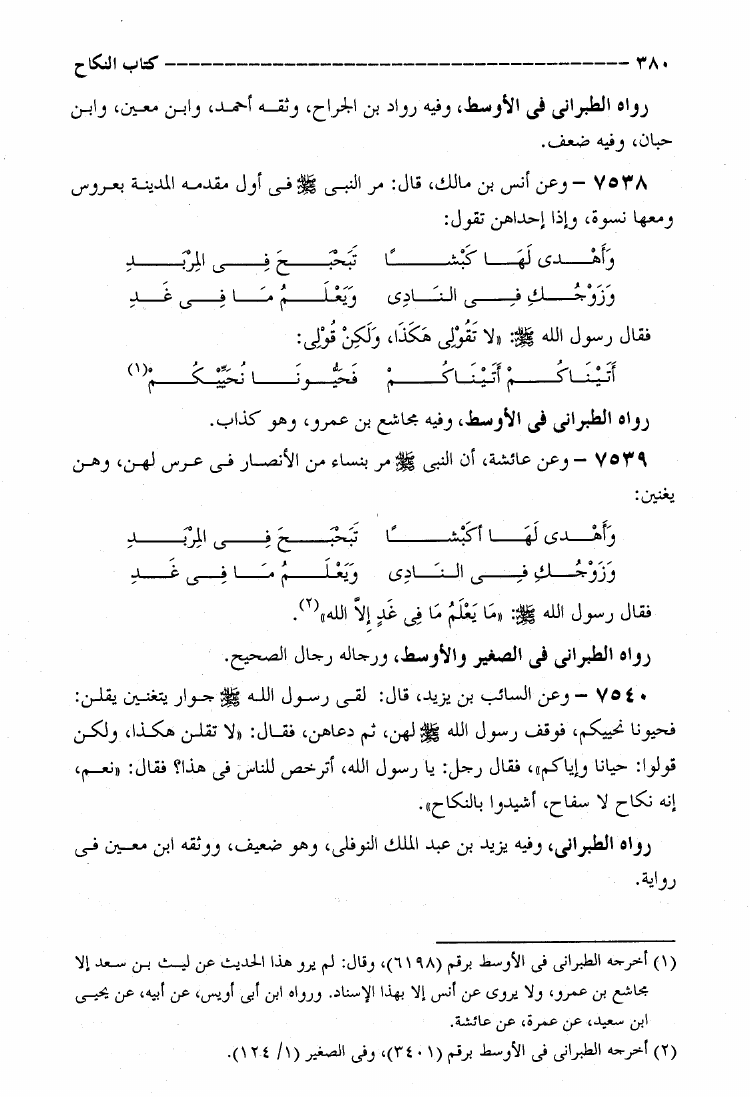 ٣٨٠ ـــــــــــــــــــــــــــــــــــــ كتاب النكاح
رواه الطبرانى فى الأوسط، وفيه رواد بن الجراح، وثقه أحمد، وابن معين، وابن
حبان، وفيه ضعف.
٧٥٣٨ – وعن أنس بن مالك، قال: مر النبى ﷺ فى أول مقدمه المدينة بعروس
ومعها نسوة، وإذا إحداهن تقول:
وَأَهْدى لَهَا كَبْشًا تَبَحْبَحَ فِى المِرْبَدِ
وَزَوْجُكِ فِى النَادِى وَيَعْلَمُ مَا فِى غَدِ
فقال رسول الله ﷺ: «لا تَقُولِى هَكَذَا، وَلَكِنْ قُولِى:
أَتَيْنَاكُمْ أَتَيْنَاكُمْ فَحَيُّونَا نُحَيِّيكُمْ»(١)
رواه الطبرانى فى الأوسط، وفيه مجاشع بن عمرو، وهو كذاب.
٧٥٣٩ – وعن عائشة، أن النبى ﷺ مر بنساء من الأنصار فى عرس لهن، وهن
يغنين:
وَأَهْدى لَهَا أكَبْشًا تَبَحْبَحَ فِى المِرْبَدِ
وَزَوْجُكِ فِى النَادِى وَيَعْلَمُ مَا فِى غَدِ
فقال رسول الله ﷺ: «مَا يَعْلَمُ مَا فِى غَدٍ إِلاَّ الله»(٢).
رواه الطبرانى فى الصغير والأوسط، ورجاله رجال الصحيح.
٧٥٤٠ – وعن السائب بن يزيد، قال: لقى رسول الله ﷺ جوار يتغنين يقلن:
فحيونا نحييكم، فوقف رسول الله ﷺ لهن، ثم دعاهن، فقال: «لا تقلن هكذا، ولكن
قولوا: حيانا وإياكم»، فقال رجل: يا رسول الله، أترخص للناس فى هذا؟ فقال: «نعم،
إنه نكاح لا سفاح، أشيدوا بالنكاح».
رواه الطبرانى، وفيه يزيد بن عبد الملك النوفلى، وهو ضعيف، ووثقه ابن معين فى
رواية.
(١) أخرجه الطبرانى فى الأوسط برقم (٦١٩٨)، وقال: لم يرو هذا الحديث عن ليث بن سعد إلا
مجاشع بن عمرو، ولا يروى عن أنس إلا بهذا الإسناد. ورواه ابن أبى أويس، عن أبيه، عن يحيى
ابن سعيد، عن عمرة، عن عائشة.
(٢) أخرجه الطبرانى فى الأوسط برقم (٣٤٠١)، وفى الصغير (١/ ١٢٤).